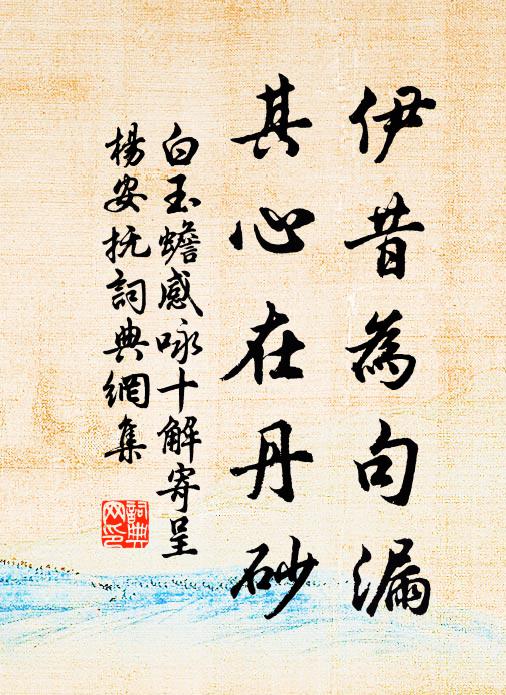 伊昔為句漏
其心在丹砂
白玉蟾感咏十解寄呈
楊安抚詞典網集
詞典
网印